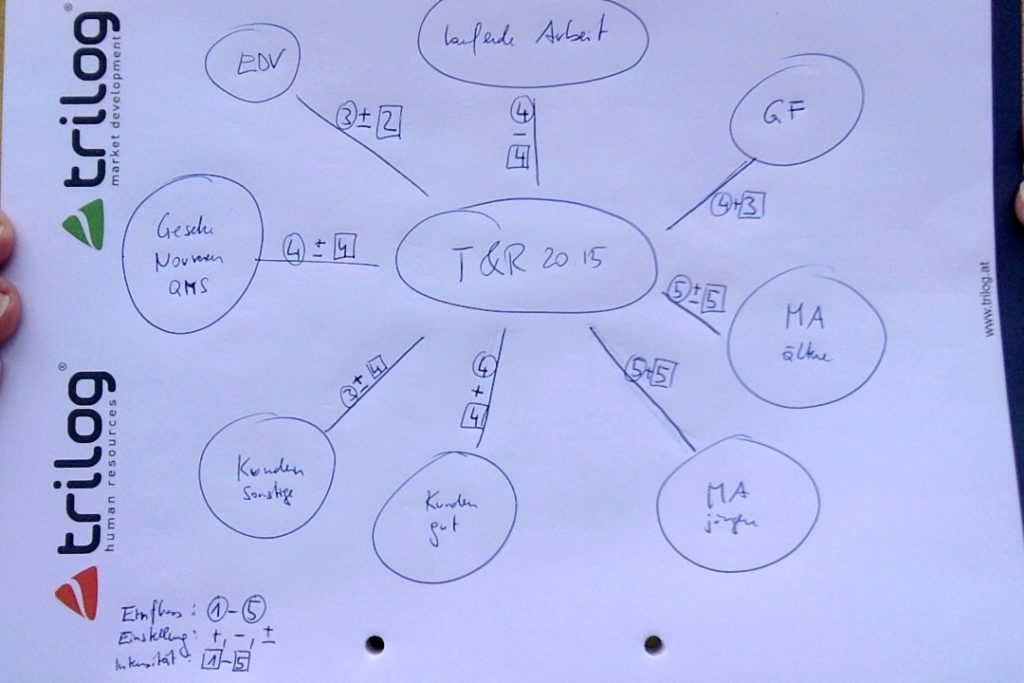 trilog®
market development
trilog®
human resources
www.trilog.at
EDV
laufende Arbeit
GF
③ ± 2
④
-
4
④+3
Gesetze
Normen
QMS
④ ± 4
T&R 20.15
⑤±5
MA
ältere
③±4
④
+
4
⑤+5
Kunden
sonstige
Kunden
gut
MA
jüngere
Einfluss: ①-⑤
Einstellung: +, -, ±
Intensität: 1-5